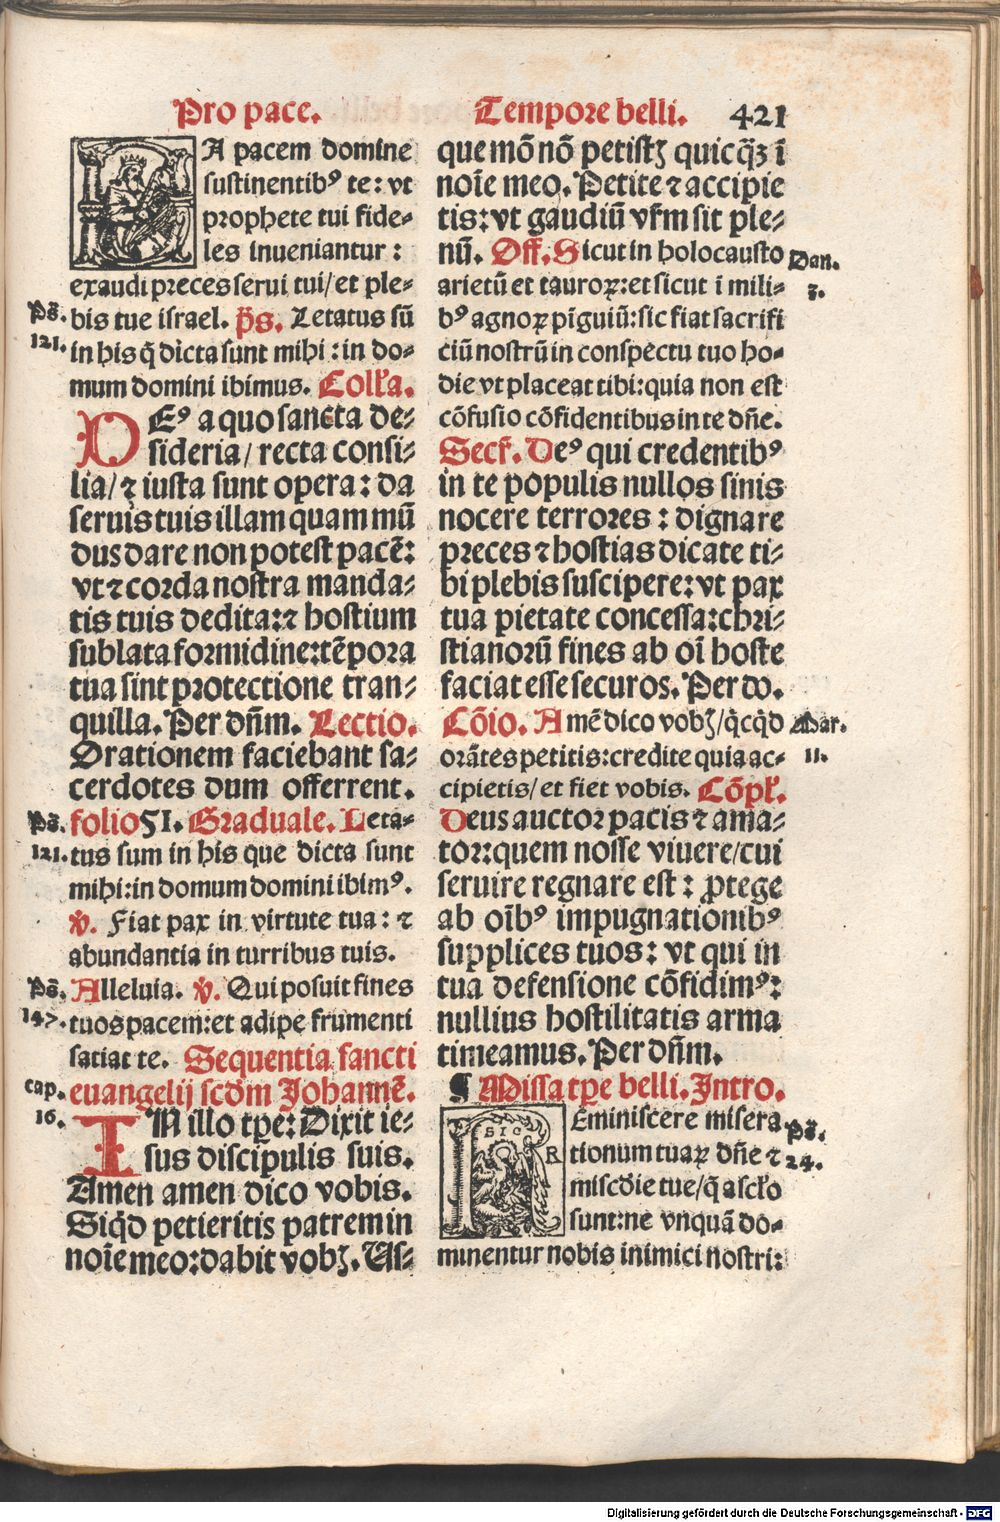 Pro pace. Tempore belli. 421
DA pacem domine
sustinentibꝰ te: vt
prophete tui fide⸗
les inueniantur:
exaudi preces serui tui/et ple⸗
bis tue israel. p̄s. Letatus sū
Ps̄.
121.
in his q̄ dicta sunt mihi: in do⸗
mum domini ibimus. Coll̄a.
DEꝰ a quo sancta de⸗
sideria/ recta consi⸗
lia/ ⁊ iusta sunt opera: da
seruis tuis illam quam mū
dus dare non potest pacē:
vt ⁊ corda nostra manda⸗
tis tuis dedita: ⁊ hostium
sublata formidine: tēpora
tua sint protectione tran⸗
quilla. Per dn̄m. Lectio.
Orationem faciebant sa⸗
cerdotes dum offerrent.
folio 51. Graduale. Leta⸗
Ps̄.
121.
tus sum in his que dicta sunt
mihi: in domum domini ibimꝰ.
v̄. Fiat pax in virtute tua: ⁊
abundantia in turribus tuis.
Alleluia. v̄. Qui posuit fines
Ps̄.
147.
tuos pacem: et adipe frumenti
satiat te. Sequentia sancti
euangelij scd̄m Johannē.
cap.
16.
IN illo tp̄e: Dixit ie⸗
sus discipulis suis.
Amen amen dico vobis.
Siq̄d petieritis patrem in
noīe meo: dabit vobꝫ. Us⸗
que mō nō petistꝫ quicq̄ꝫ ī
noīe meo. Petite ⁊ accipie
tis: vt gaudiū vr̄m sit ple⸗
nū. Off̄. Sicut in holocausto
Dan.
3.
arietū et tauroꝝ: et sicut ī mili⸗
bꝰ agnoꝝ pīguiū: sic fiat sacrifi
ciū nostrū in conspectu tuo ho⸗
die vt placeat tibi: quia non est
cōfusio cōfidentibus in te dn̄e.
Secr̄. Deꝰ qui credentibꝰ
in te populis nullos sinis
nocere terrores: dignare
preces ⁊ hostias dicate ti⸗
bi plebis suscipere: vt pax
tua pietate concessa: chri⸗
stianorū fines ab oī hoste
faciat esse securos. Per do.
Cōio. Amē dico vobꝫ/ q̄cq̄d
Mar.
11.
orātes petitis: credite quia ac⸗
cipietis/ et fiet vobis. Cōpl̄.
Deus auctor pacis ⁊ ama⸗
tor: quem nosse viuere/ cui
seruire regnare est: ꝓtege
ab oībꝰ impugnationibꝰ
supplices tuos: vt qui in
tua defensione cōfidimꝰ:
nullius hostilitatis arma
timeamus. Per dn̄m.
¶ Missa tp̄e belli. Intro.
REminiscere misera
Ps̄.
24.
tionum tuaꝝ dn̄e ⁊
misc̄die tue/ q̄ a scl̄o
sunt: ne vnquā do⸗
minentur nobis inimici nostri:
Digitalisierung gefördert durch die Deutsche Forschungsgemeinschaft - DFG